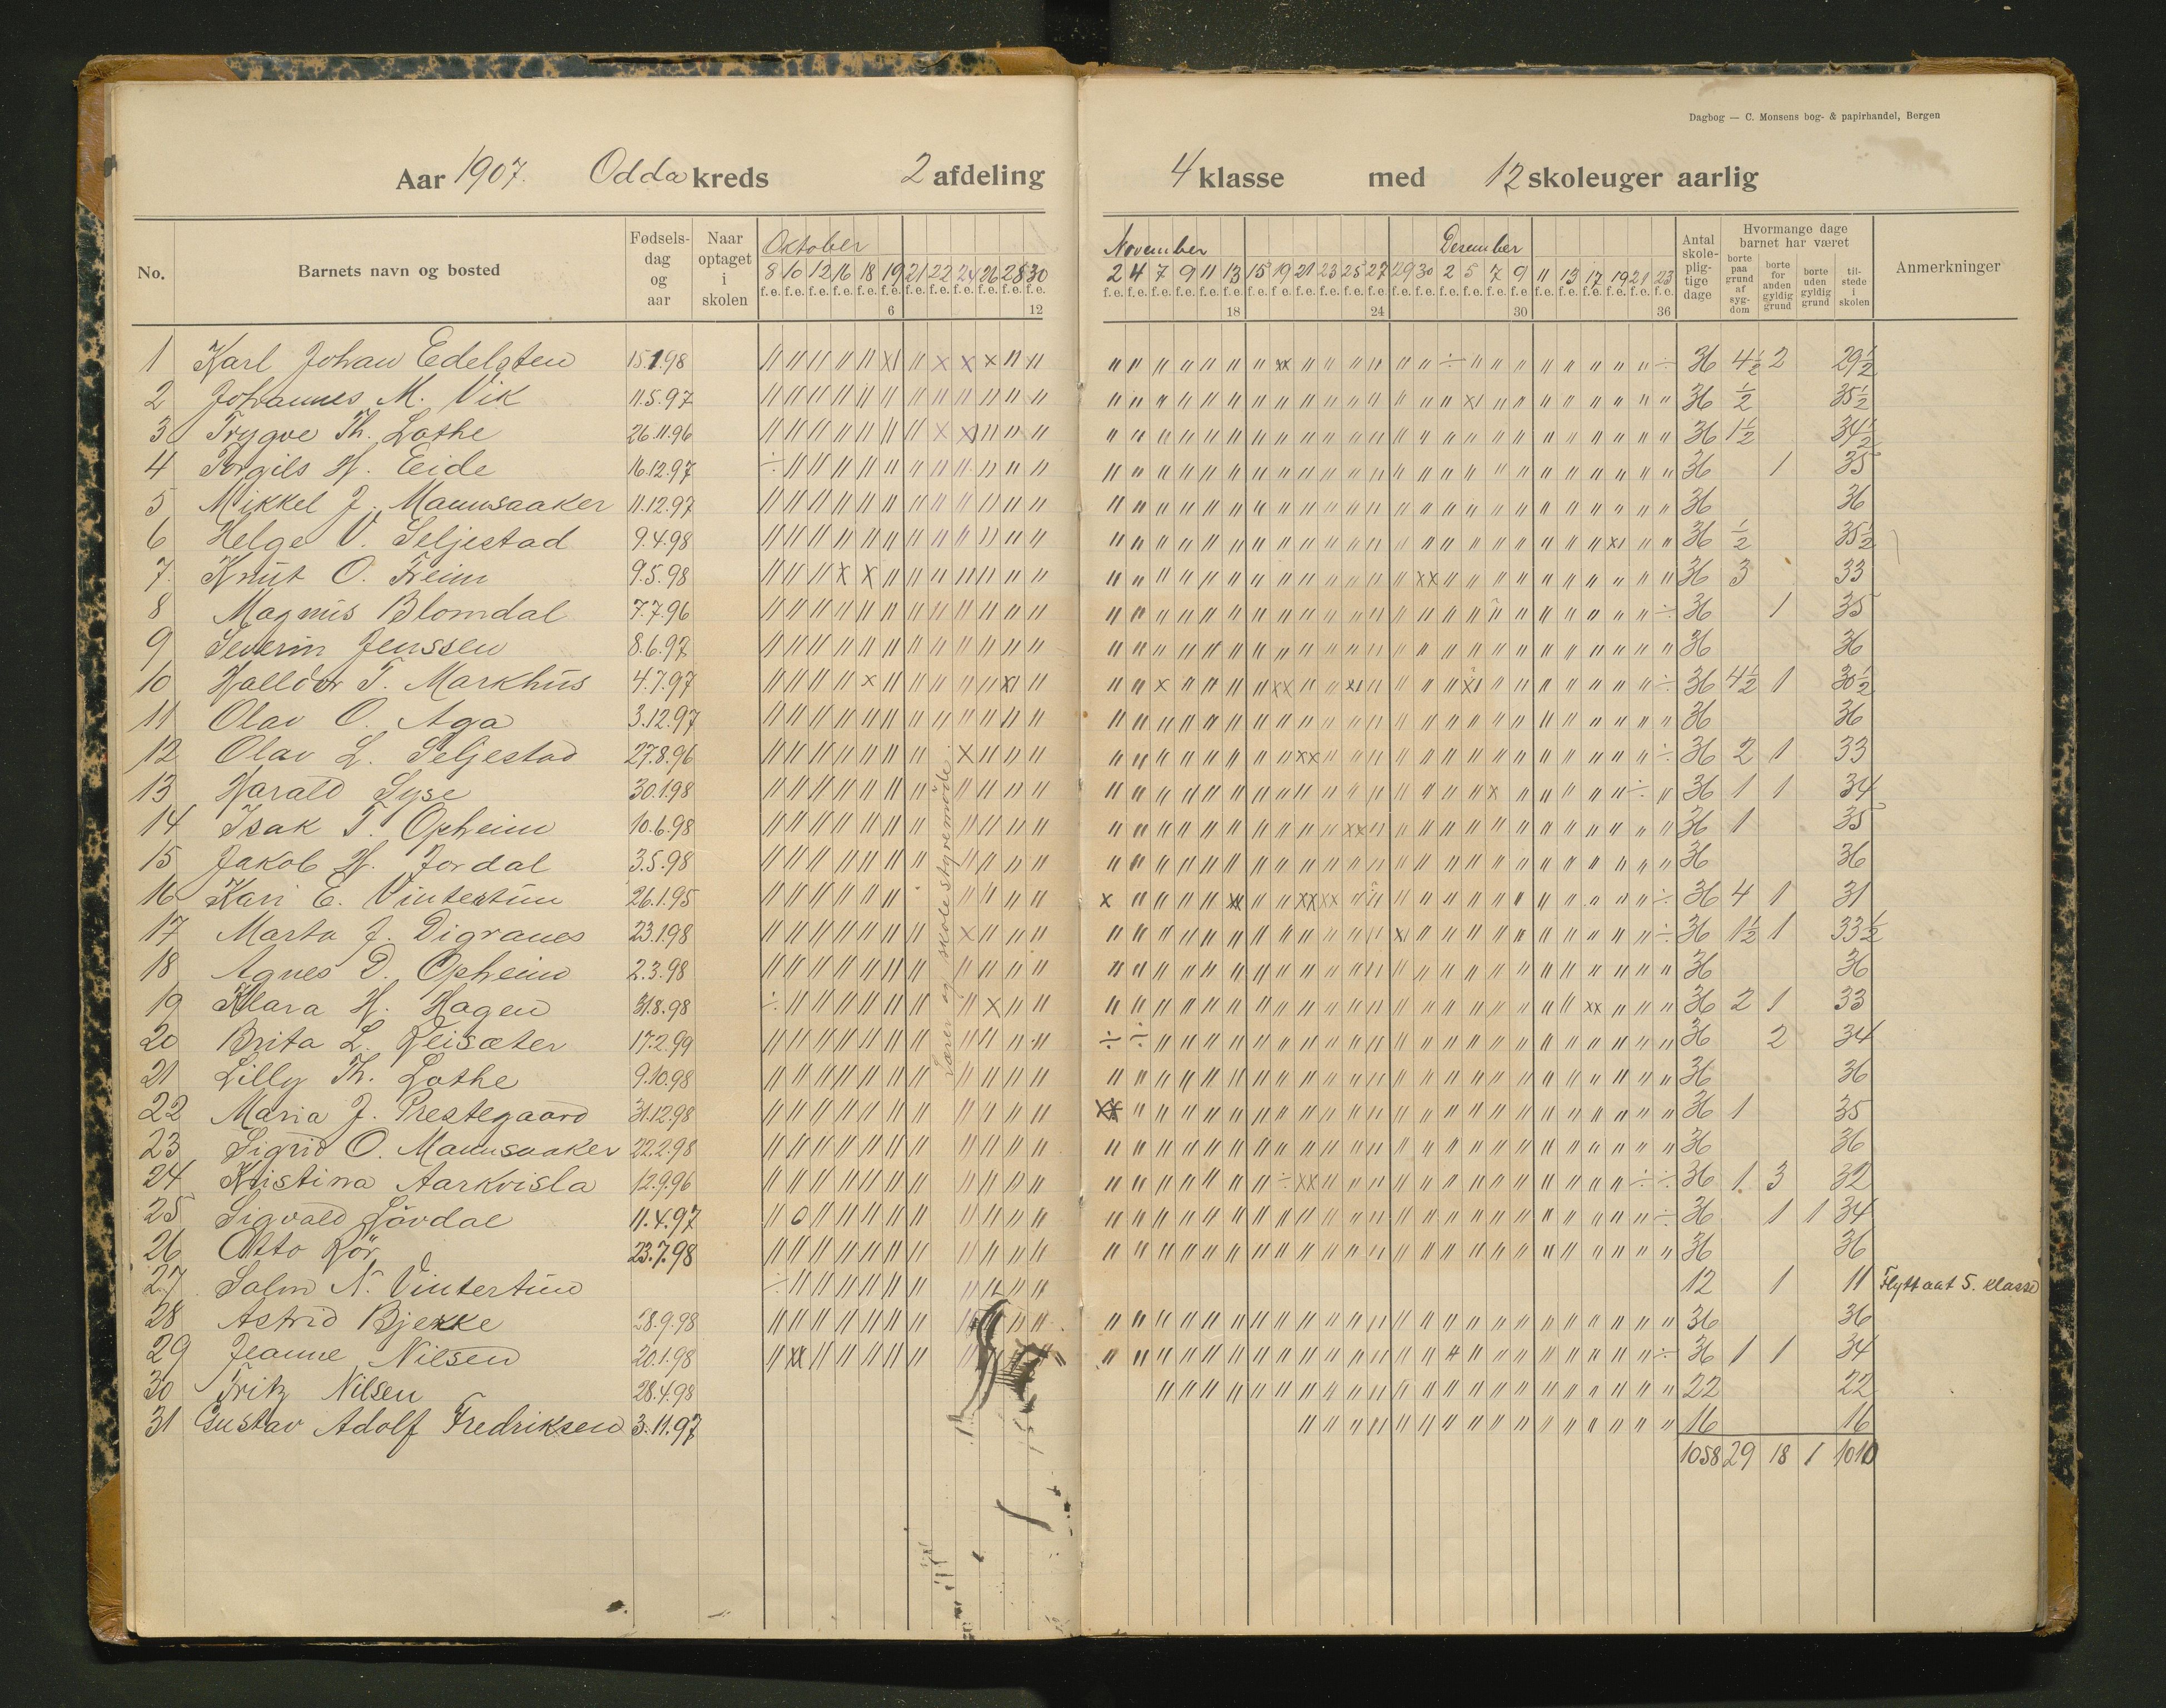 Dagbog — C. Monsens bog- & papirhandel, Bergen
Aar 1907. Odda kreds 2 afdeling 4 klasse med 12 skoleuger aarlig
No. Barnets navn og bosted Fødsels-dag og aar Naar optaget i skolen Oktober November Desember Antal skole-plig-tige dage Hvormange dage barnet har været Anmerkninger
borte paa grund af syg-dom borte for anden gyldig grund borte uden gyldig grund til-stede i skolen
8 10 12 16 18 19 21 22 24 26 28 30 2 4 7 9 11 13 15 19 21 23 25 27 29 30 2 5 7 9 11 13 17 19 21 23
f.e. f.e. f.e. f.e. f.e. f.e. f.e. f.e. f.e. f.e. f.e. f.e. f.e. f.e. f.e. f.e. f.e. f.e. f.e. f.e. f.e. f.e. f.e. f.e. f.e. f.e. f.e. f.e. f.e. f.e. f.e. f.e. f.e. f.e. f.e. f.e.
6 12 18 24 30 36
1 Karl Johan Edelsten 15.1.98 36 4½ 2 29½
2 Johannes M. Vik 11.5.97 36 ½ 35½
3 Trygve Th. Lothe 26.11.96 36 1½ 34½
4 Torgils H. Eide 16.12.97 36 1 35
5 Mikkel J. Mannsaaker 11.12.97 36 36
6 Helge V. Seljestad 9.4.98 36 ½ 35½
7. Knut O. Freim 9.5.98 36 3 33
8 Magnus Blomdal 7.7.96 36 1 35
9 Severin Jenssen 8.6.97 36 36
10 Halldor T. Markhus 4.7.97 36 4½ 1 30½
11 Olav O. Aga 3.12.97 36 36
12 Olav L. Seljestad 27.8.96 36 2 1 33
13 Harald Syse 30.1.98 36 1 1 34
14 Isak T. Opheim 10.6.98 36 1 35
15 Jakob H. Jordal 3.5.98 36 36
16 Kari E. Vintertun 26.1.95 36 4 1 31
17 Marta J. Digranes 23.1.98 36 1½ 1 33½
18 Agnes D. Opheim 2.3.98 36 36
19 Klara H. Hagen 31.8.98 36 2 1 33
20 Brita L. Reisæter 17.2.99 36 2 34
21 Lilly Th. Lothe 9.10.98 36 36
22 Maria J. Prestegaard 31.12.98 36 1 35
23 Sigrid O. Mannsaaker 22.2.98 36 36
24 Kristina Aarkvisla 12.9.96 36 1 3 32
25 Sigvald Lövdal 11.4.97 36 1 1 34
26 Otto Rör 23.7.98 36 36
27 N. Vintertun 12 1 11 Flytt aat 5. klasse
28 Astrid Bjerke 28.9.98 36 36
29 Jeanne Nilsen 20.1.98 36 1 1 34
30 Fritz Nilsen 28.4.98 22 22
31 Gustav Adolf Fredriksen 3.11.97 16 16
1058 29 18 1 1010
Lærer og skolestyremöde.